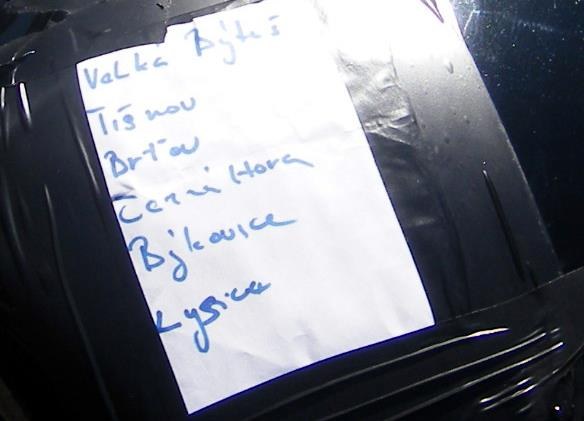 Velká Býteš
Tišnov
Brťov
Černá Hora
Býkovice
Lysice